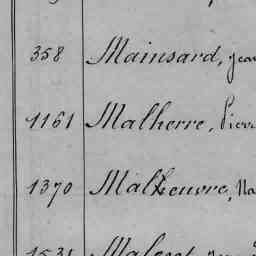 358 Mainsard, Jean
1161 Malherre, Pierr
1370 Malheuvre, Na
1531